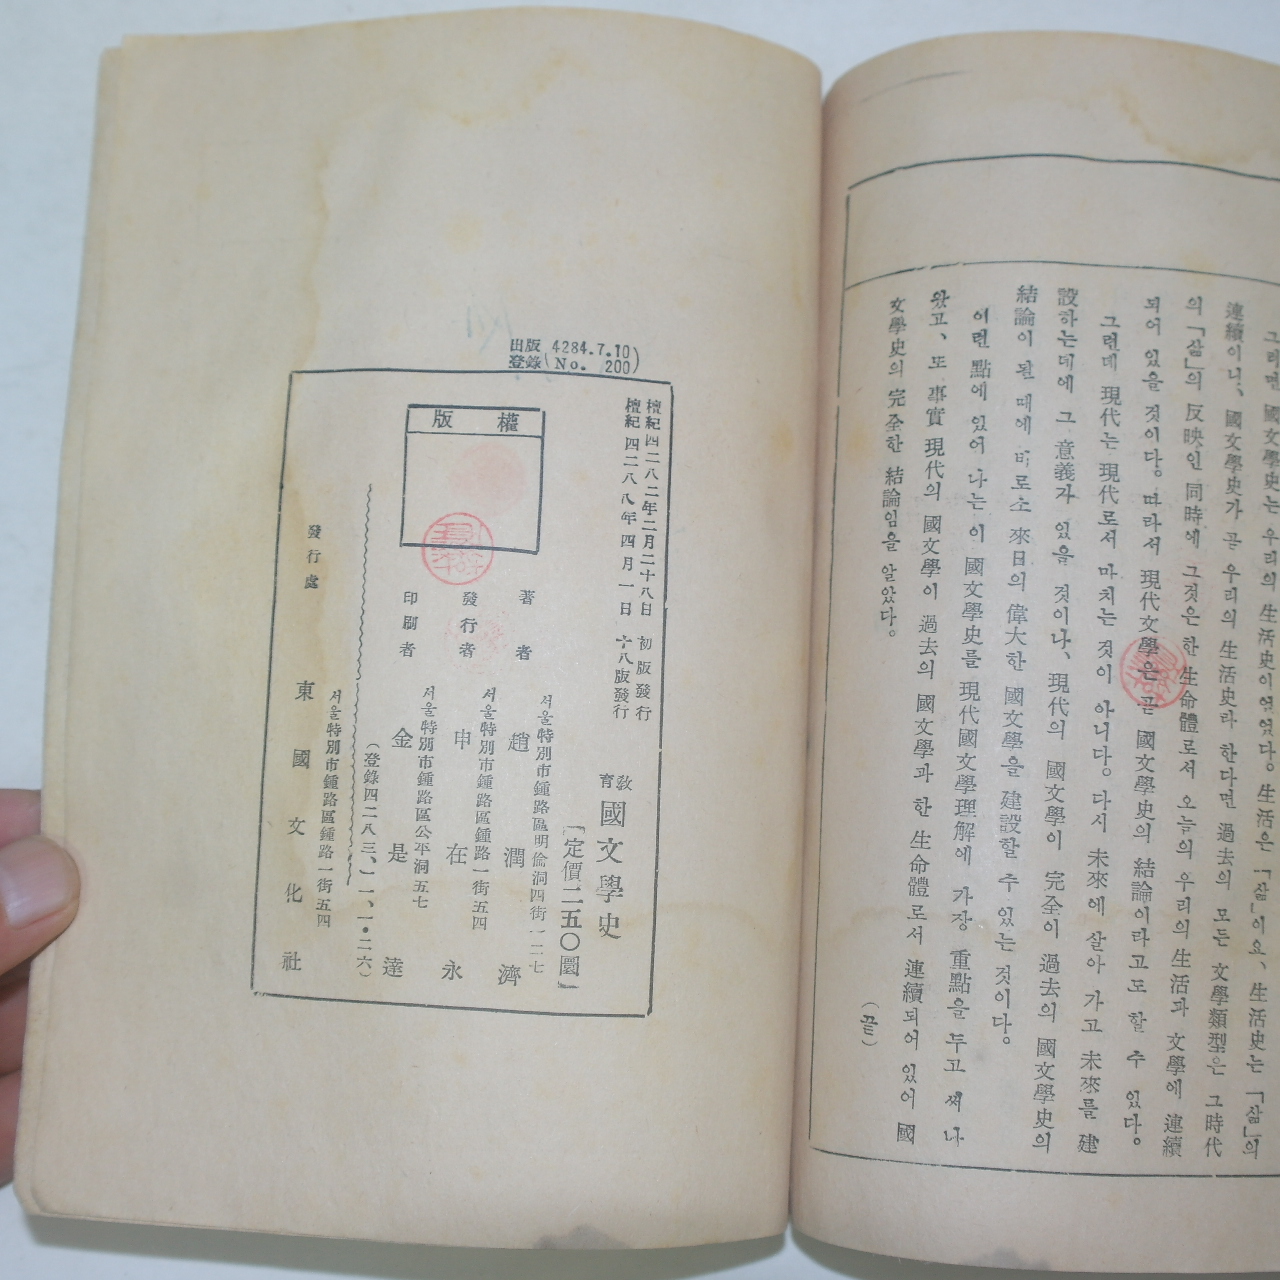 그러면 國文學史는 우리의 生活史이였었다。生活은 「삶」이요、生活史는 「삶」의
連續이니、國文學史가 곧 우리의 生活史라 한다면 過去의 모든 文學類型은 그 時代
의 「삶」의 反映인 同時에 그것은 한 生命體로서 오늘의 우리의 生活과 文學에 連續
되어 있을 것이다。따라서 現代文學은 곧 國文學史의 結論이라고도 할 수 있다。
그런데 現代는 現代로서 마치는 것이 아니다。다시 未來에 살아 가고 未來를 建
設하는데에 그 意義가 있을 것이나、現代의 國文學이 完全이 過去의 國文學史의
結論이 될 때에 비로소 來日의 偉大한 國文學을 建設할 수 있는 것이다。
이런 點에 있어 나는 이 國文學史를 現代國文學理解에 가장 重點을 두고 써 나
왔고、또 事實 現代의 國文學이 過去의 國文學과 한 生命體로서 連續되어 있어 國
文學史의 完全한 結論임을 알았다。
(끝)
出版登錄 (4284.7.10 No. 200)
檀紀四二八二年二月二十八日 初版發行
檀紀四二八八年四月一日 十八版發行
敎育 國文學史
[定價二五〇圜]
版權
서울特別市鍾路區明倫洞四街一二七
著者 趙潤濟
서울特別市鍾路區鍾路一街五四
發行者 申在永
서울特別市鍾路區公平洞五七
印刷者 金是達
(登錄四二八三、一一、一・二六)
서울特別市鍾路區鍾路一街五四
發行處 東國文化社